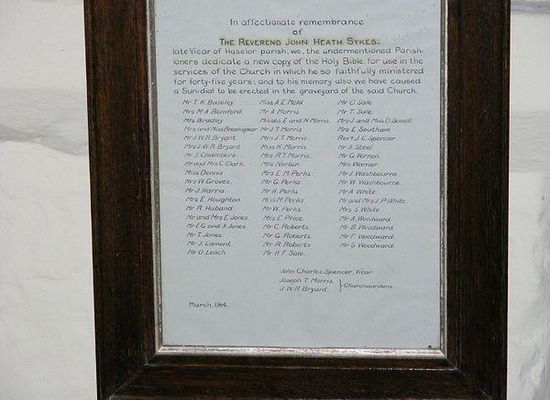 In affectionate remembrance
of
The Reverend John Heath Sykes.
late Vicar of Haselor parish, we, the undermentioned Parish-
ioners dedicate a new copy of the Holy Bible, for use in the
services of the Church in which he so faithfully ministered
for forty-five years: and to his memory also we have caused
a Sun-dial to be erected in the graveyard of the said Church.
Mr T. K. Baseley Miss A. E. Mold. Mr O. Sale.
Mrs M. A. Bomford. Mr A. Morris Mr T. Sale.
Mrs Bradley. Misses E. and N. Morris. Mrs J. and Miss D. Sewell.
Mrs and Miss Breakspear Mr J. T. Morris. Mrs E. Southam
Mr J. W. R. Bryant. Mrs J. T. Morris Revd J. C. Spencer.
Mrs J. W. R. Bryant. Miss K. Morris Mr A. Steel.
Mr J. Chambers Mrs R. T. Morris. Mr G. Vernon.
Mr and Mrs C. Clark. Mrs Norton. Mrs Warner
Miss Dennis Mrs E. M. Perks. Mr J. Washbourne
Mrs W. Groves. Mr G. Perks. Mr W. Washbourne
Mr J. Harris. Mr H. Perks. Mr A. White
Mrs E. Houghton Miss M. Perks. Mr and Mrs J. P. White
Mr R. Huband. Mr W. Perks Mrs S. White
Mr and Mrs E. Jones. Mrs E. Price Mr A. Woodward
Mr E. G. and A. Jones Mr C. Roberts. Mr B. Woodward
Mr T. Jones. Mr G. Roberts. Mr F. Woodward.
Mr J. Lament. Mr R. Roberts Mr S. Woodward.
Mr O. Leach Mr H. T. Sale.
John Charles Spencer, Vicar.
Joseph T. Morris. } Churchwardens.
J. W. R. Bryant.
March, 1914.